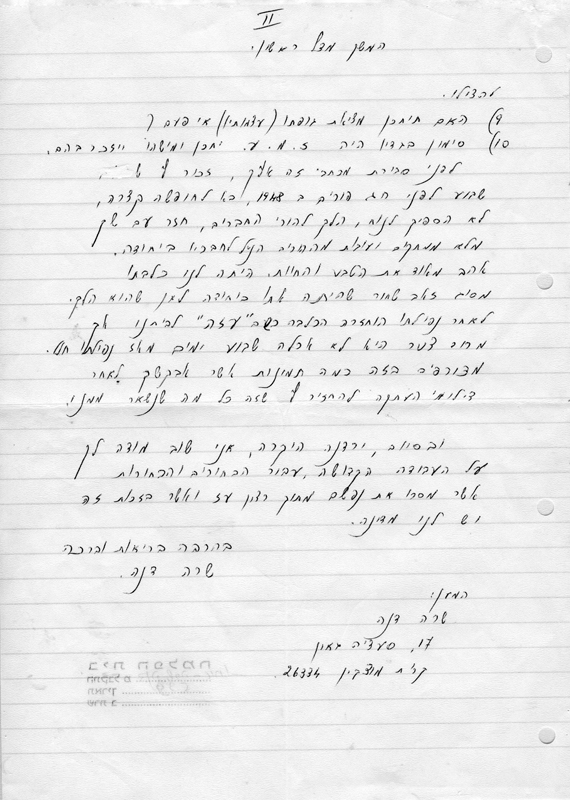 II
המשך מצל ראשון.
להצילו.
9) האם תיתכן מציאת גופתו (עצמותיו) אי פעם?
10) סימון בגדיו היה ז. מ. ע. יתכן ומישהו ייזכר בהם.
לפני סדרת מכתבי זה אליך, זכור לי
שבוע לפני חג פורים ב 1948, בא לחופשה קצרה,
לא הספיק לנוח, הלך להורי החברים, חזר עם שק
מלא ממתקים ועוגות מההורים הנ"ל לחבריו ביחידה.
אהב מאוד את הטבע והחיות. היתה לנו כלבתו
מסוג זאב שחור שהיתה אתו ביחידה לאן שהוא הלך.
לאחר נפילתו הוחזרה הכלבה בשם "עזה" לביתנו אך
מרוב צער היא לא אכלה שבוע ימים מאז נפילתו
מצורפים בזה כמה תמונות אשר אבקשך לאחר
צילומי העתקה להחזיר לי שזה כל מה שנשאר ממנו.
ובסיום, ירדנה היקרה, אני שוב מודה לך
על העבודה הקדושה, עבור הבחורים והבחורות
אשר מסרו את נפשם מתוך רצון עז ואשר בזכות זה
יש לנו מדינה.
בהרבה בריאות וברכה
שרה דנה.
המען:
שרה דנה
17, סעדיה גאון
קרית מוצקין 26334.
בית הפלמח
התקבל
תאריך